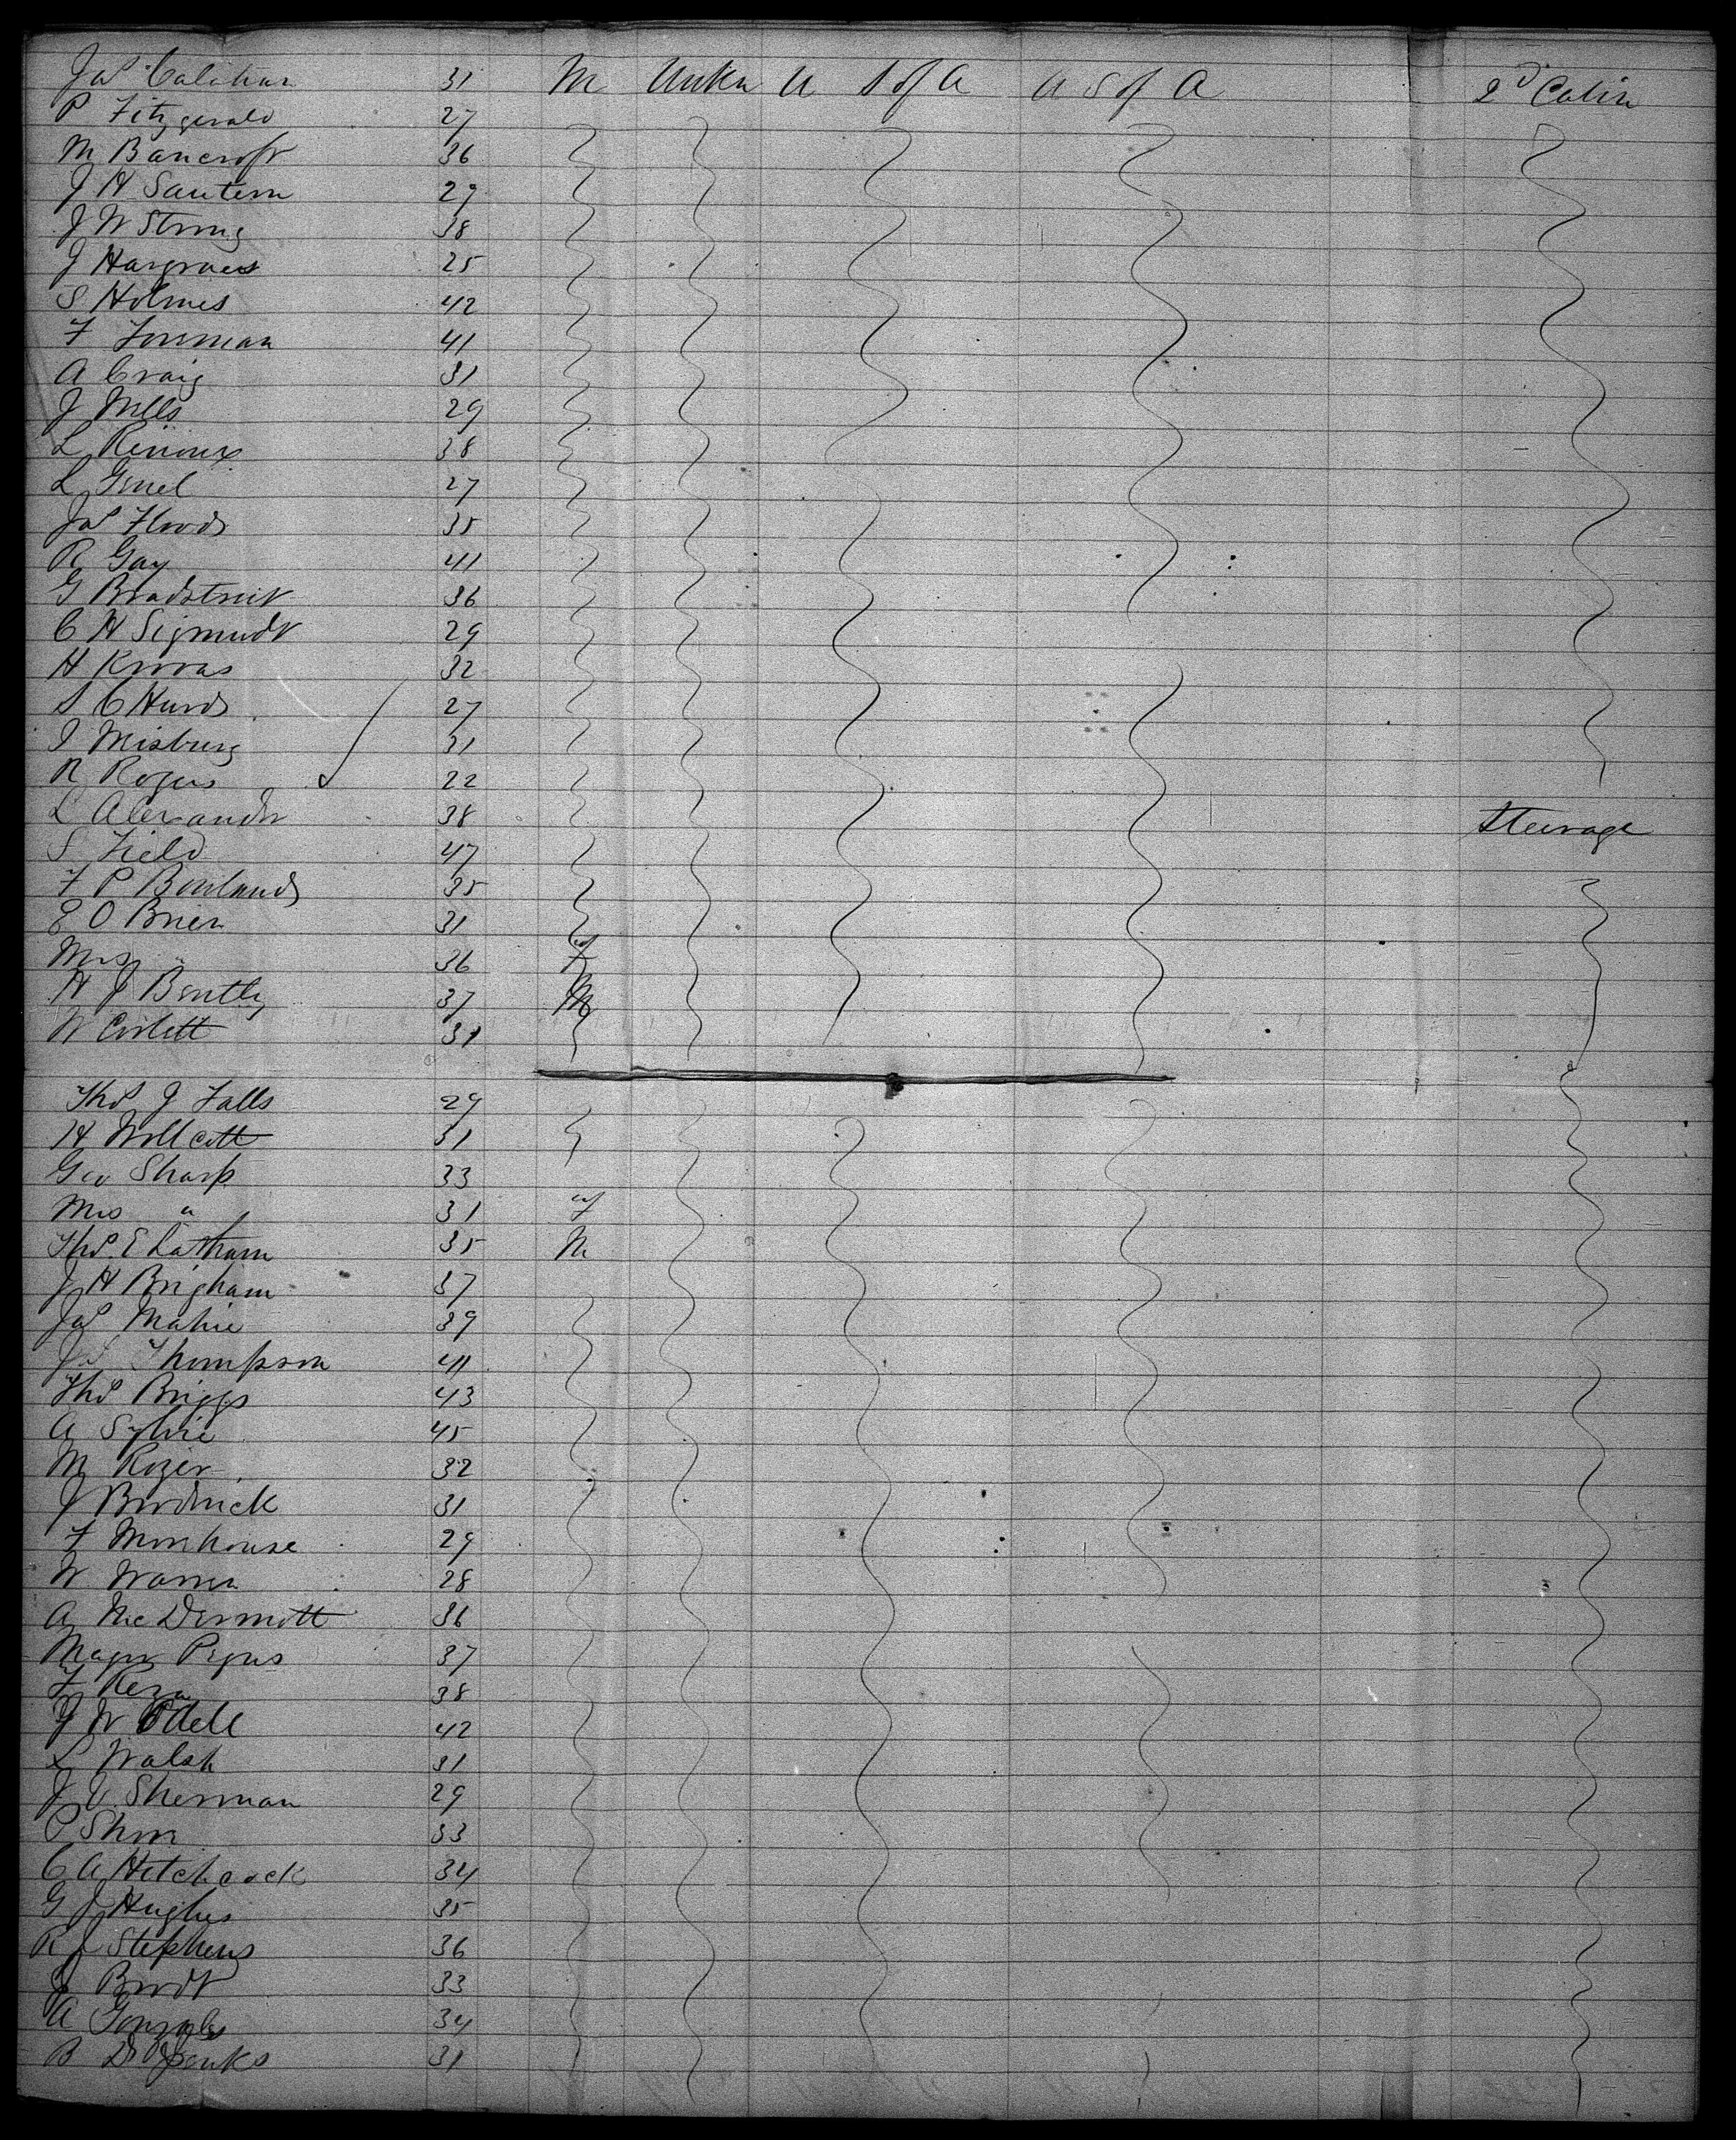 Jas Calihan 31 M Unkn U S of A U S of A 2d Cabin
P Fitzgerald 27
M Bancroft 36
J H Santern 29
J W Strong 38
J Hargraves 25
S Holmes 42
F Foreman 41
A Craig 31
J Mills 29
L Renoux 38
L Gruel 27
Jas Floods 35
R Gay 41
G Bradstreet 36
C H Sigmundt 29
H 32
S C Hurds 27
I Misburg 31
R Rogers 22
L Alexander 38 Steerage
S Field 47
F P 35
E O Brien 31
Mrs " 36 f
H J Bently 37 M
W Corlett 31
Thos J Falls 29
H Wollcott 31
Geo Sharp 33
Mrs " 31 f
Thos E Latham 35 M
J H Brigham 37
Jas Mahie 39
Jas Thompson 41
Thos Briggs 43
A Sylvie 45
M Rozer 32
J Brodrick 31
F Morehouse 29
W Warren 28
A McDermott 36
Major 37
F Reza 38
J W Odell 42
L Walsh 31
J V Sherman 29
P Shon 33
C A Hitchcock 34
G J Hughes 35
R J Stephens 36
J Brodt 33
A Gonzales 34
B D Jenks 31